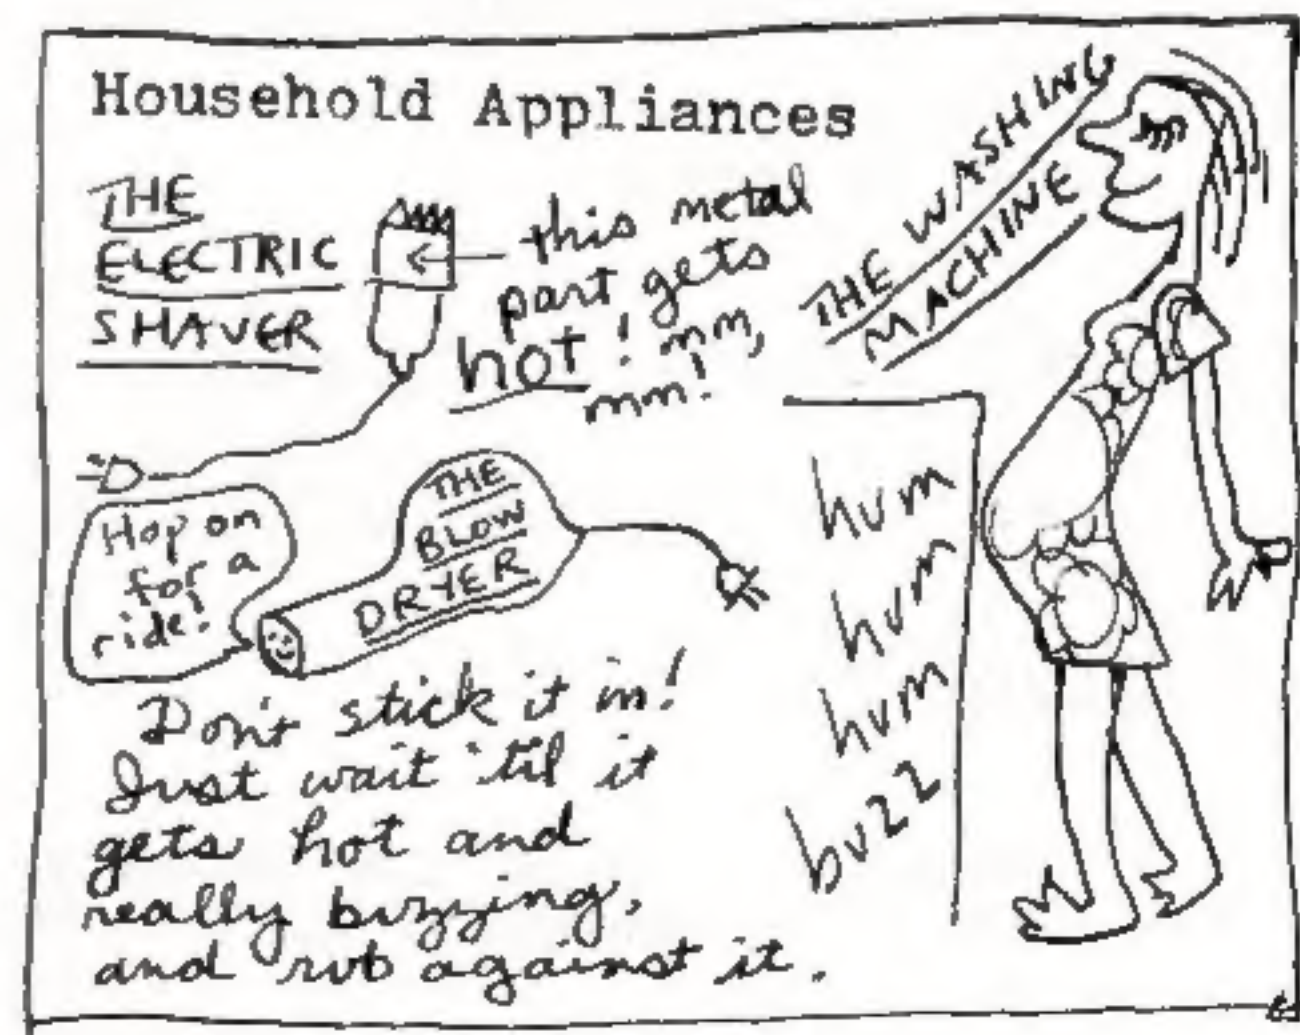 Household Appliances
THE
ELECTRIC
SHAVER
this metal
part gets
hot! mm,
mm!
Hop on
for a
ride!
THE
BLOW
DRYER
Don't stick it in!
Just wait 'til it
gets hot and
really buzzing,
and rub against it.
THE WASHING
MACHINE
hum
hum
hum
buzz